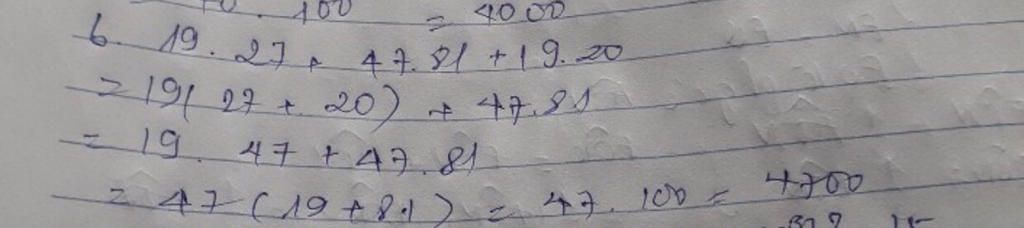 . 100 = 4000
b. 19. 27 + 47. 81 + 19. 20
= 19( 27 + 20) + 47. 81
= 19. 47 + 47. 81
= 47 (19 + 81) = 47. 100 = 4700